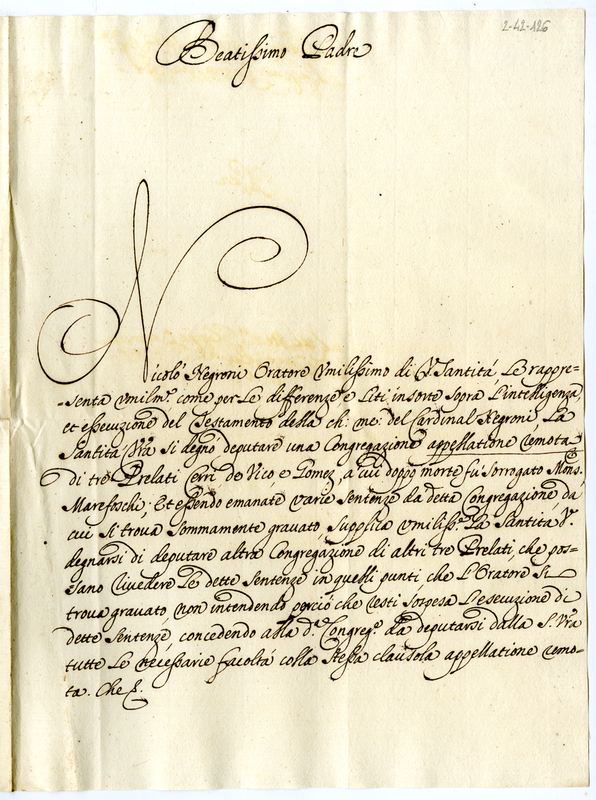 2-42-126
Beatissimo Padre
Nicolò Negroni Oratore Umilissimo di V. Santità, Le rappre=
=senta umilmte come per Le differenze e Liti insorte sopra l'intelligenza,
et essecuzione del Testamento della ch: me: del Cardinal Negroni, La
Santità Vra si degnò deputare una Congregazione appellatione remota
di tre Prelati Cerri de Vico, e Gomez, a cui doppo morte fù sorrogato Mons.
Marefoschi; Et essendo emanate varie sentenze da detta Congregazione da
cui si trova sommamente gravato, supplica umiliss.e La Santità V.
degnarsi di deputare altra Congregazione di altri tre Prelati, che pos=
=sano rivedere Le dette sentenze in quelli punti che L'Oratore si
trova gravato non intendendo perciò che resti sospesa L'esecuzione di
dette sentenze concedendo alla d.a Congreg.e da deputarsi dalla S. Vra
tutte Le necessarie facoltà colla stessa clausola appellatione remo=
ta. Che &.